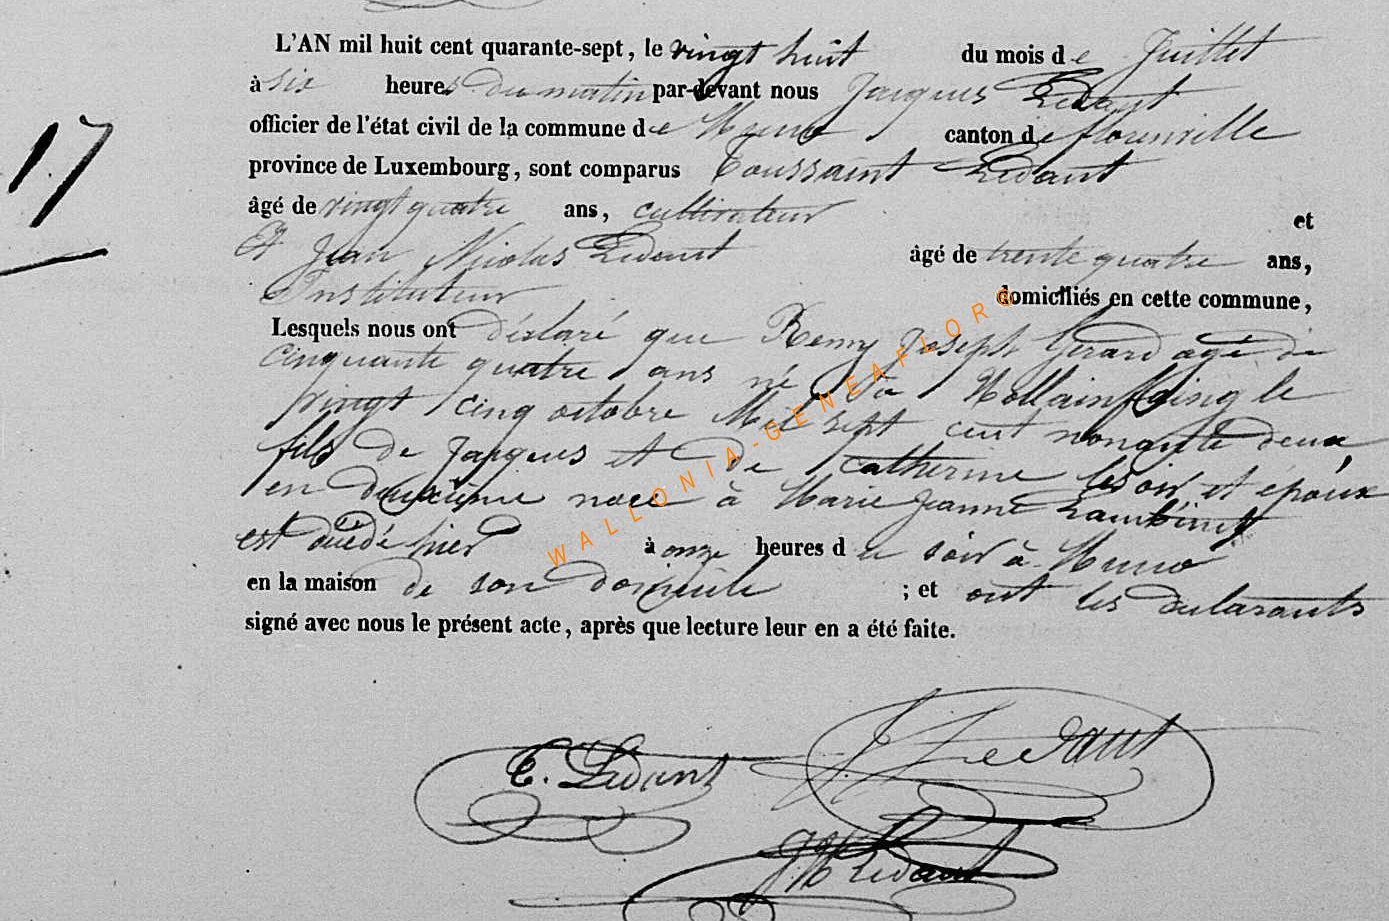 17
L'AN mil huit cent quarante-sept, le vingt huit du mois de Juillet
à six heures du matin par-devant nous Jacques Ledant
officier de l'état civil de la commune de Muno canton de florenville
province de Luxembourg, sont comparus Toussaint Ledant
âgé de vingt quatre ans, cultivateur et
Et Jean Nicolas Ledant âgé de trente quatre ans,
Instituteur domiciliés en cette commune,
Lesquels nous ont déclaré que Remy Joseph Gerard agé de
cinquante quatre ans né à Hollainfloing le
vingt cinq octobre Mil sept cent nonante deux,
fils de Jacques et de Catherine lesoir, et époux
en deuxième noce à Marie Jeanne Lambinet
est décédé hier à onze heures du soir à Muno
en la maison de son domicile ; et ont les déclarants
signé avec nous le présent acte, après que lecture leur en a été faite.
T. Ledant J. Ledant
JN Ledant
WALLONIA-GENEAFLORE